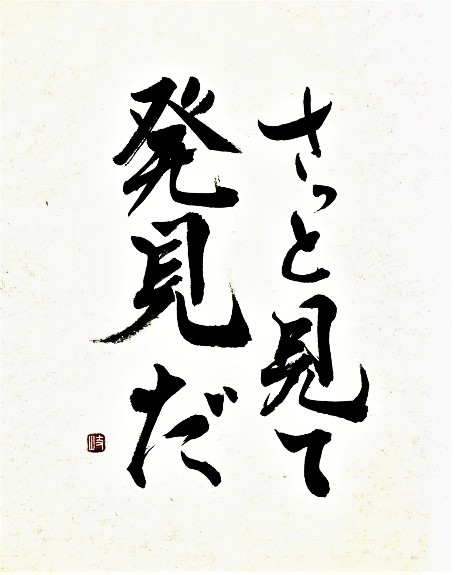 さっと見て
発見だ
岐